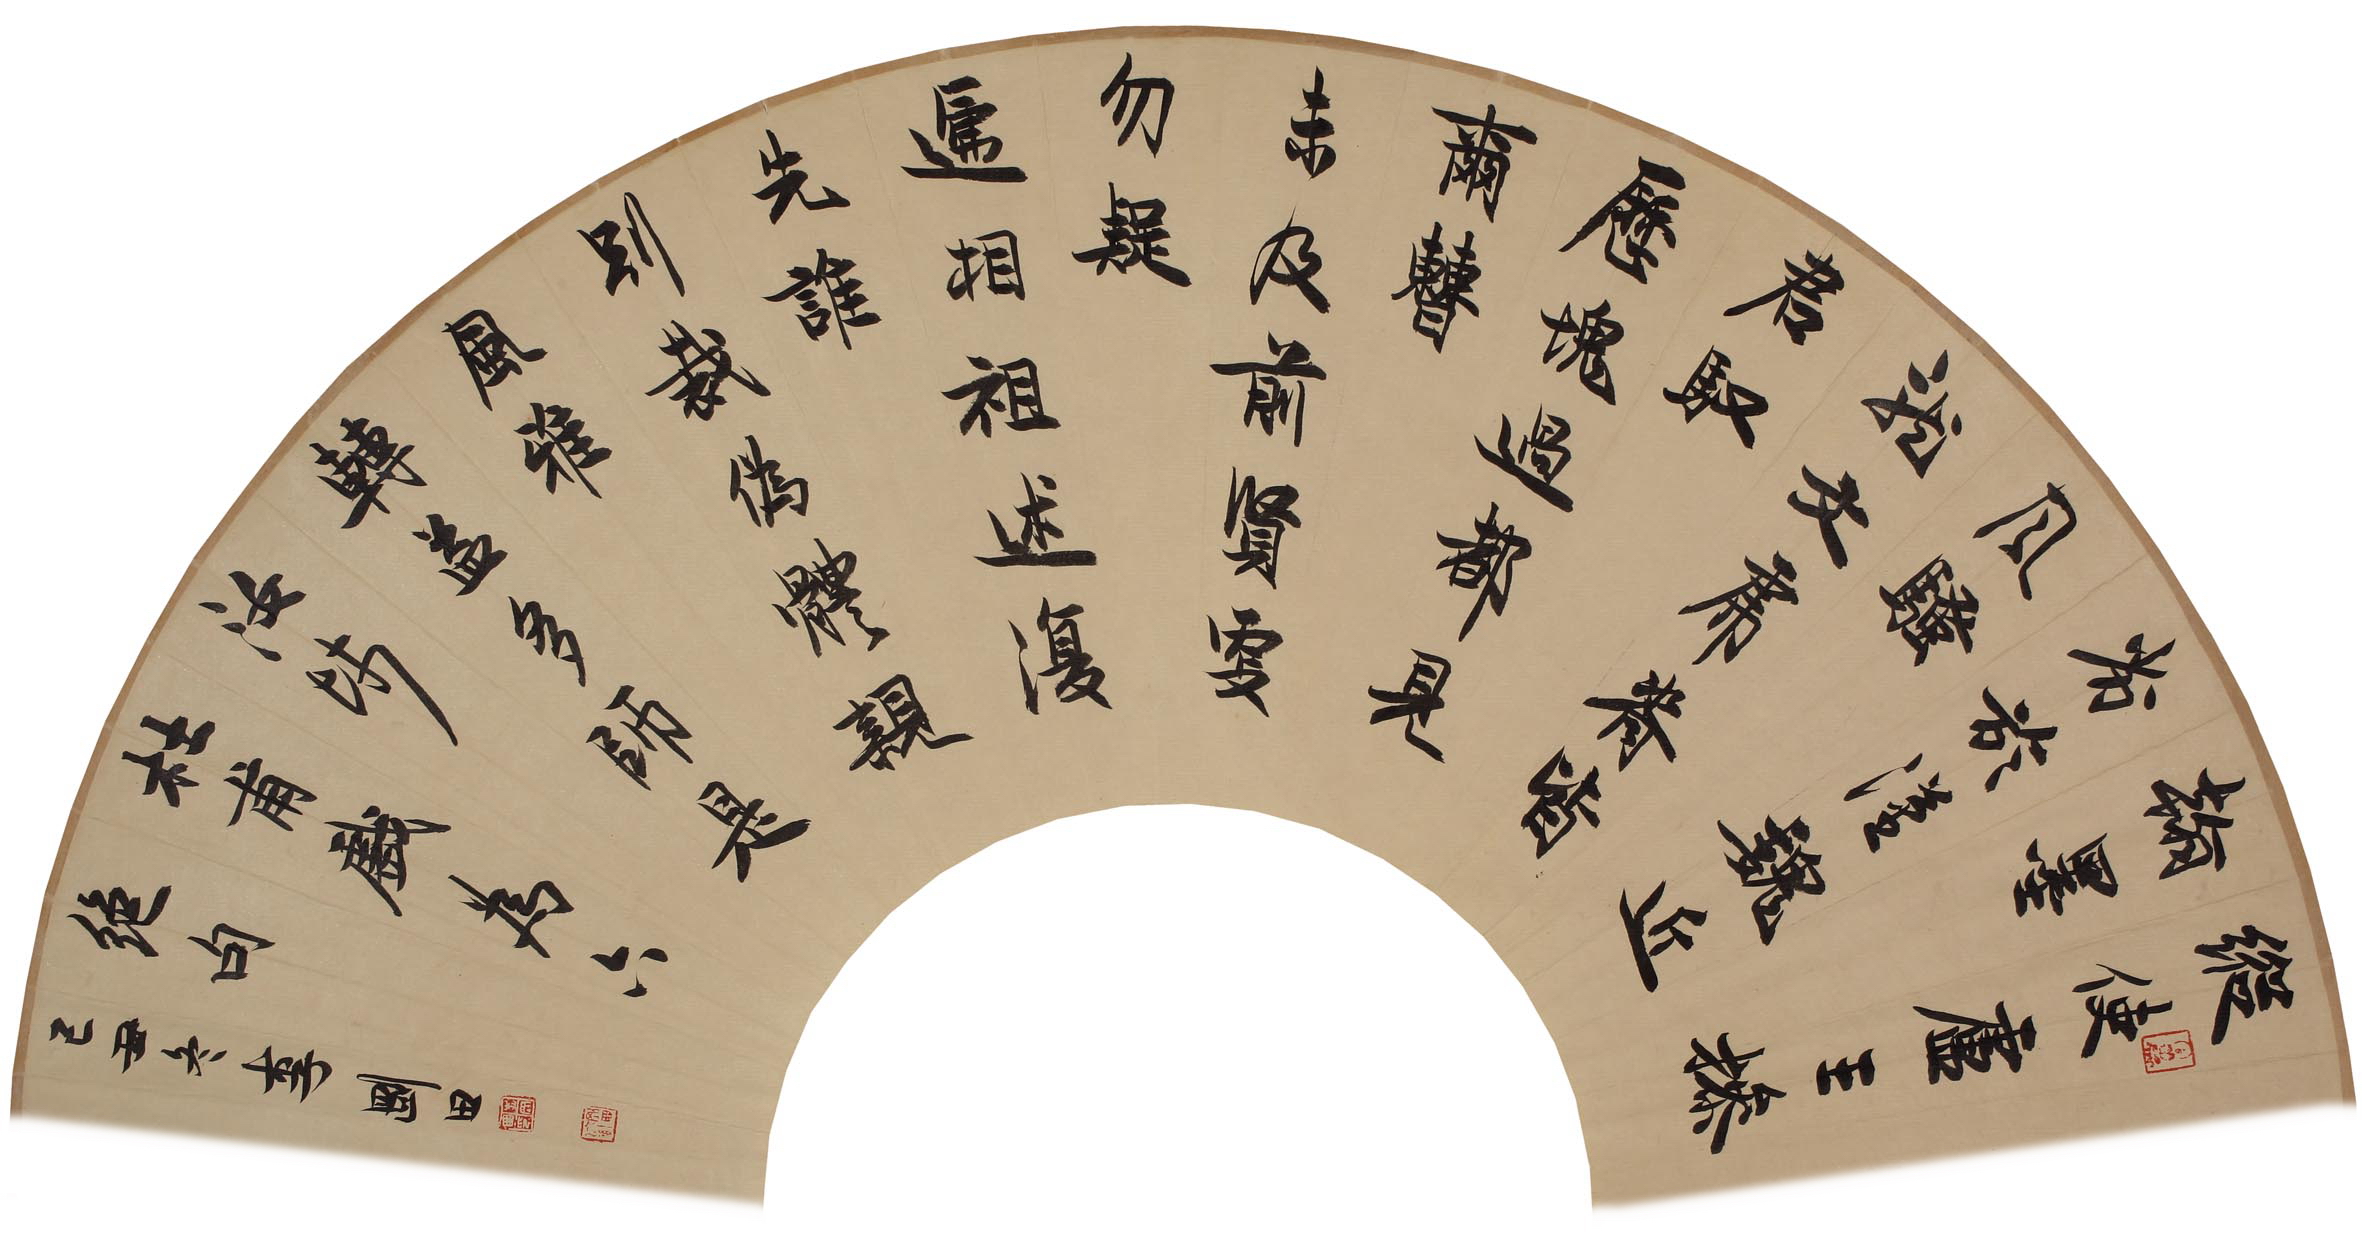 縱使盧王操
翰墨
劣於漢魏近
風騷
龍文虎脊皆
君馭
歷塊過都見
爾曹
未及前賢更
勿疑
遞相祖述復
先誰
別裁偽體親
風雅
轉益多師是
汝師
杜甫戲為六
絕句
己丑冬李剛田